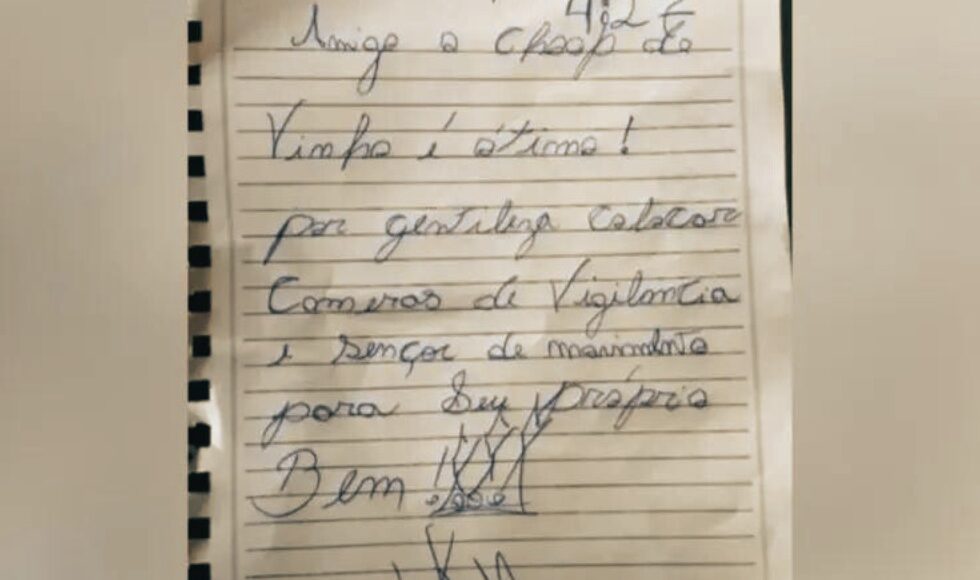 Amigo o chopp de
Vinho é ótimo!
por gentileza colocar
Cameras de Vigilancia
e sençor de movimento
para Seu próprio
Bem